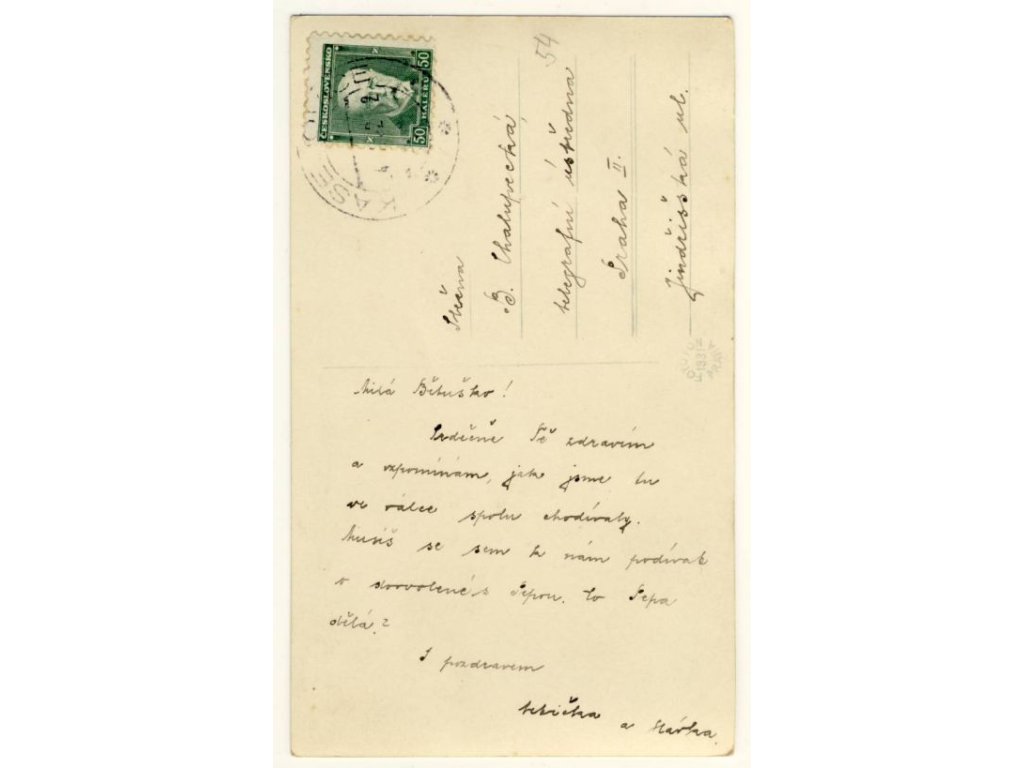 ČESKOSLOVENSKO
50 HALÉŘŮ 50
54
Slečna
B. Chalupecká,
telegrafní ústředna
Praha II.
Jindřišská ul.
Milá Bětuško!
Srdečně Tě zdravím
a vzpomínám, jak jsme tu
ve válce spolu chodívaly.
Musíš se sem k nám podívat
o dovolené s Pepou. Co Pepa
dělá?
S pozdravem
tetička a Slávka.